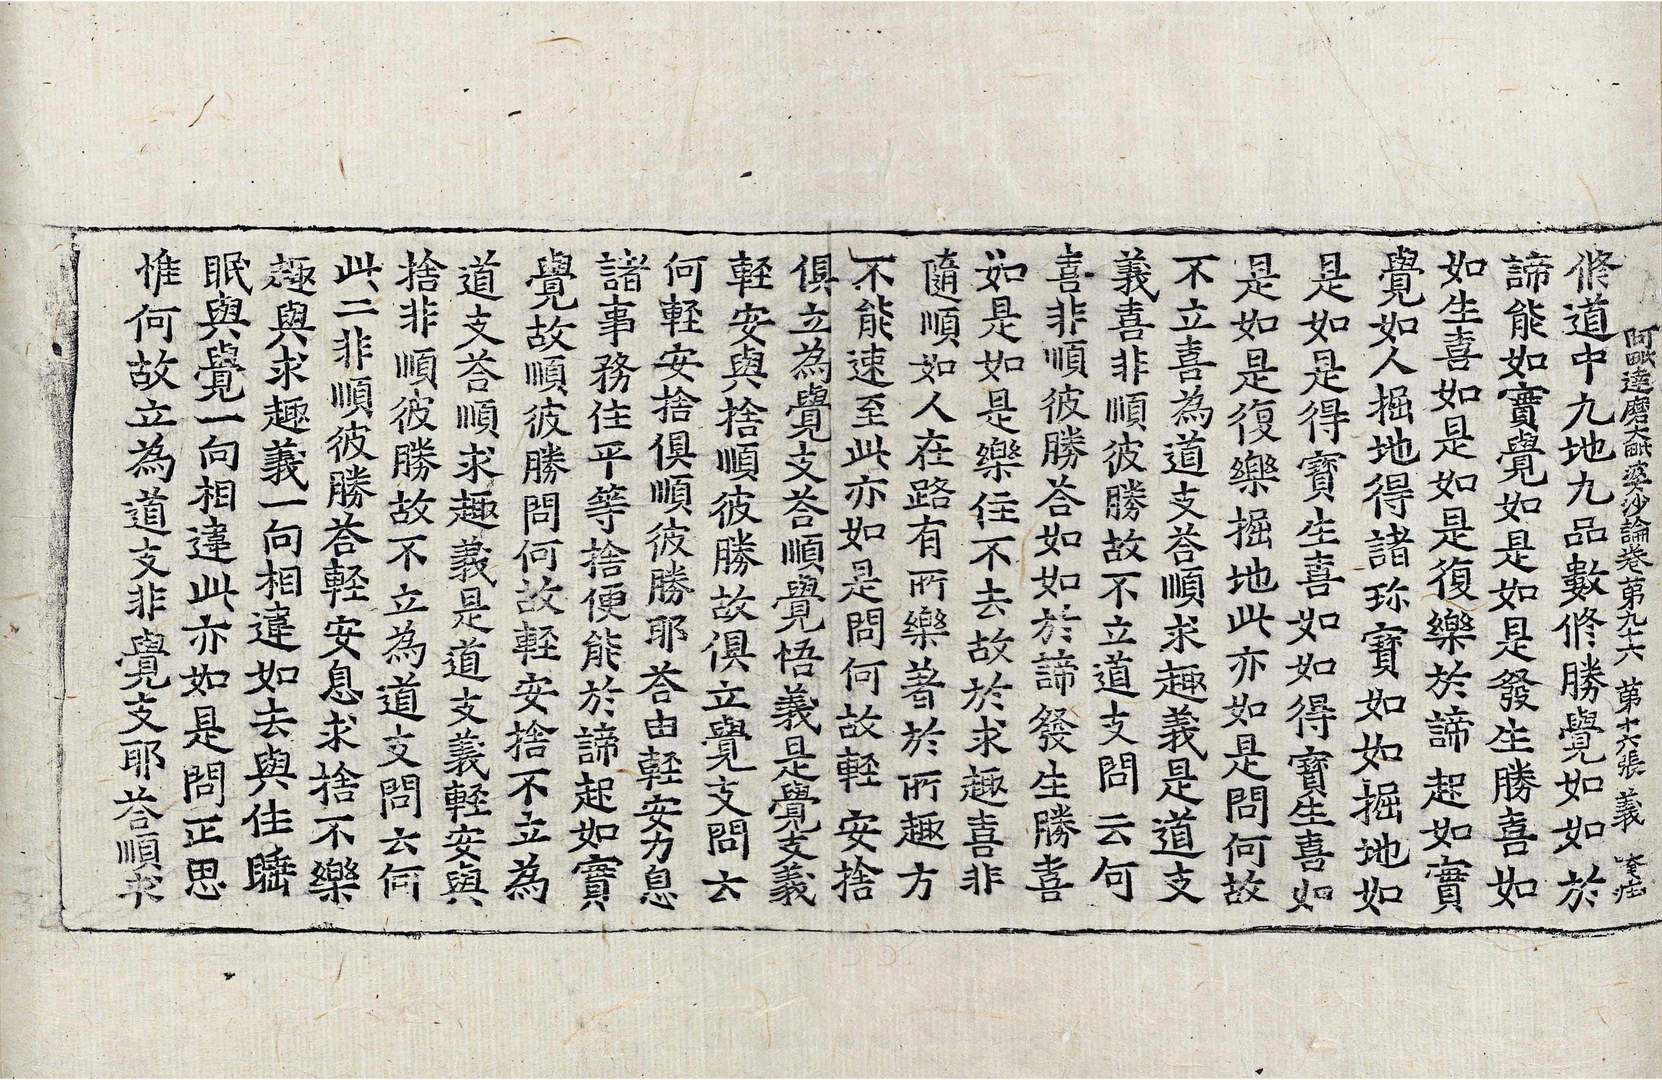 阿毗達磨大毗婆沙論卷苐九十六 苐十六張 義
修道中九地九品數修勝覺如如於
諦能如實覺如是如是發生勝喜如
如生喜如是如是復樂於諦起如實
覺如人掘地得諸珎寶如如掘地如
是如是得寶生喜如如得寶生喜如
是如是復樂掘地此亦如是問何故
不立喜為道支荅順求趣義是道支
義喜非順彼勝故不立道支問云何
喜非順彼勝荅如如於諦發生勝喜
如是如是樂住不去故於求趣喜非
隨順如人在路有所樂著於所趣方
不能速至此亦如是問何故輕安捨
俱立為覺支荅順覺悟義是覺支義
輕安與捨順彼勝故俱立覺支問云
何輕安捨俱順彼勝耶荅由輕安力息
諸事務住平等捨便能於諦起如實
覺故順彼勝問何故輕安捨不立為
道支荅順求趣義是道支義輕安與
捨非順彼勝故不立為道支問云何
此二非順彼勝荅輕安息求捨不樂
趣與求趣義一向相違如去與住睡
眠與覺一向相違此亦如是問正思
惟何故立為道支非覺支耶荅順求